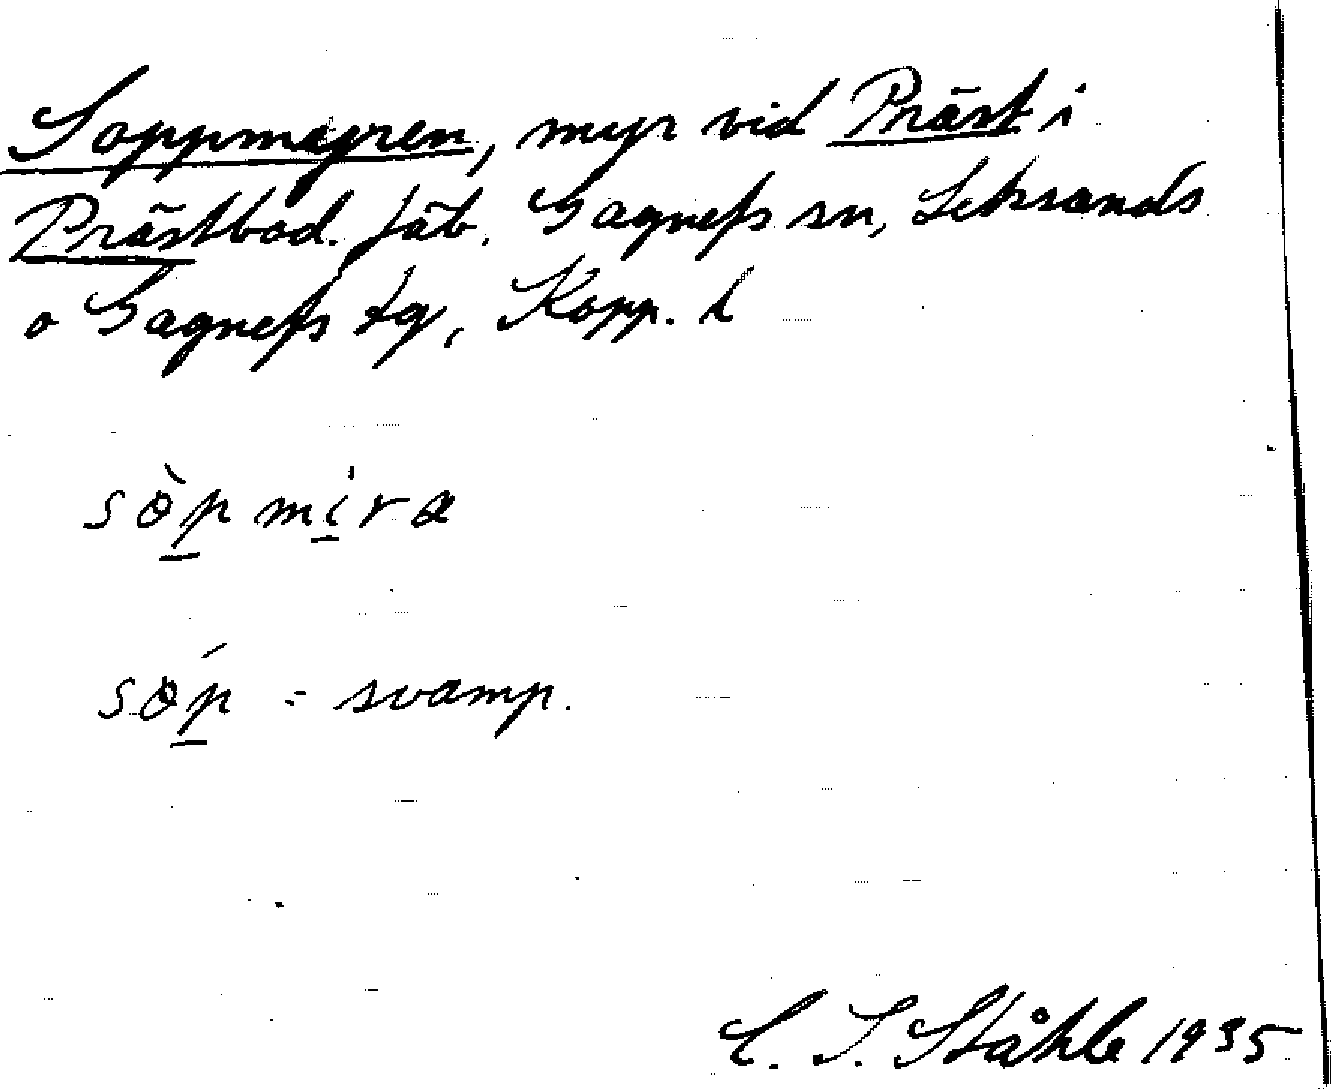 Soppmyren, myr vid Präst i
Prästbod. fäb. Gagnefs sn, Leksands
o Gagnefs tg, Kopp. l
sòpmira
sóp = svamp.
C. I. Ståhle 1935